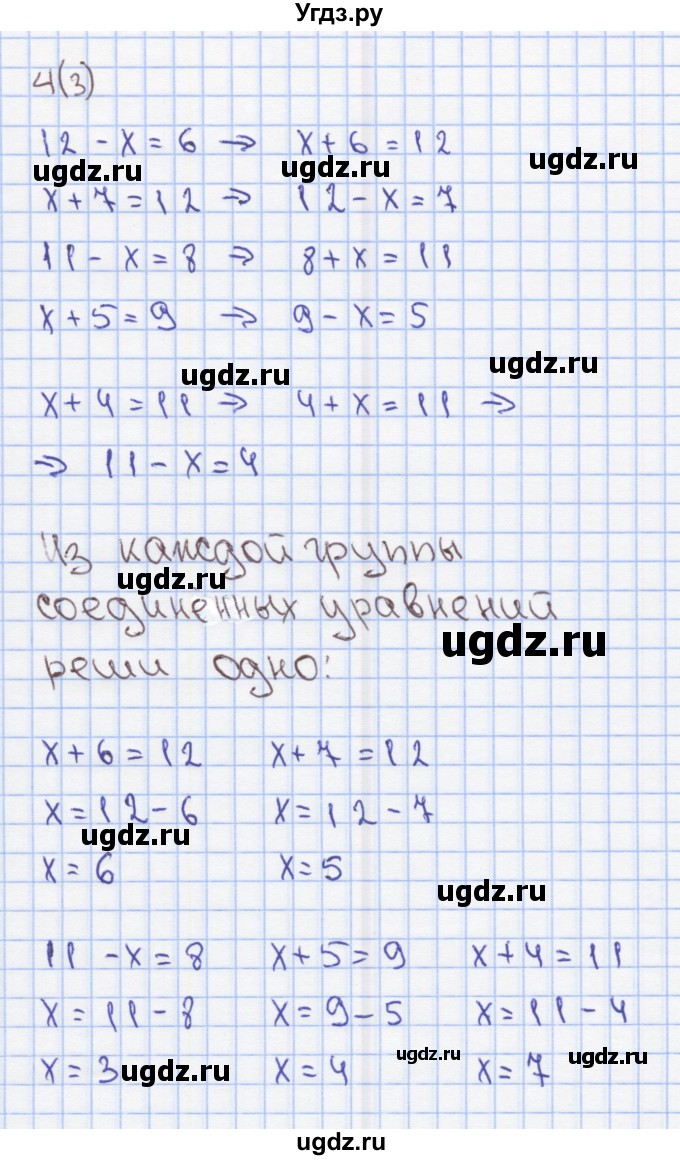 Угдз.ру
4(3)
12 - x = 6 → x + 6 = 12
ugdz.ru ugdz.ru ugdz.ru
x + 7 = 12 → 12 - x = 7
11 - x = 8 → 8 + x = 11
x + 5 = 9 → 9 - x = 5
ugdz.ru ugdz.ru
x + 4 = 11 → 4 + x = 11 →
→ 11 - x = 4
Из каждой группы
ugdz.ru
соединенных уравнений
ugdz.ru
реши одно:
x + 6 = 12 x + 7 = 12
x = 12 - 6 x = 12 - 7
ugdz.ru
x = 6 x = 5
ugdz.ru
11 - x = 8 x + 5 = 9 x + 4 = 11
x = 11 - 8 x = 9 - 5 x = 11 - 4
ugdz.ru ugdz.ru
x = 3 ugdz.ru x = 4 x = 7
ugdz.ru